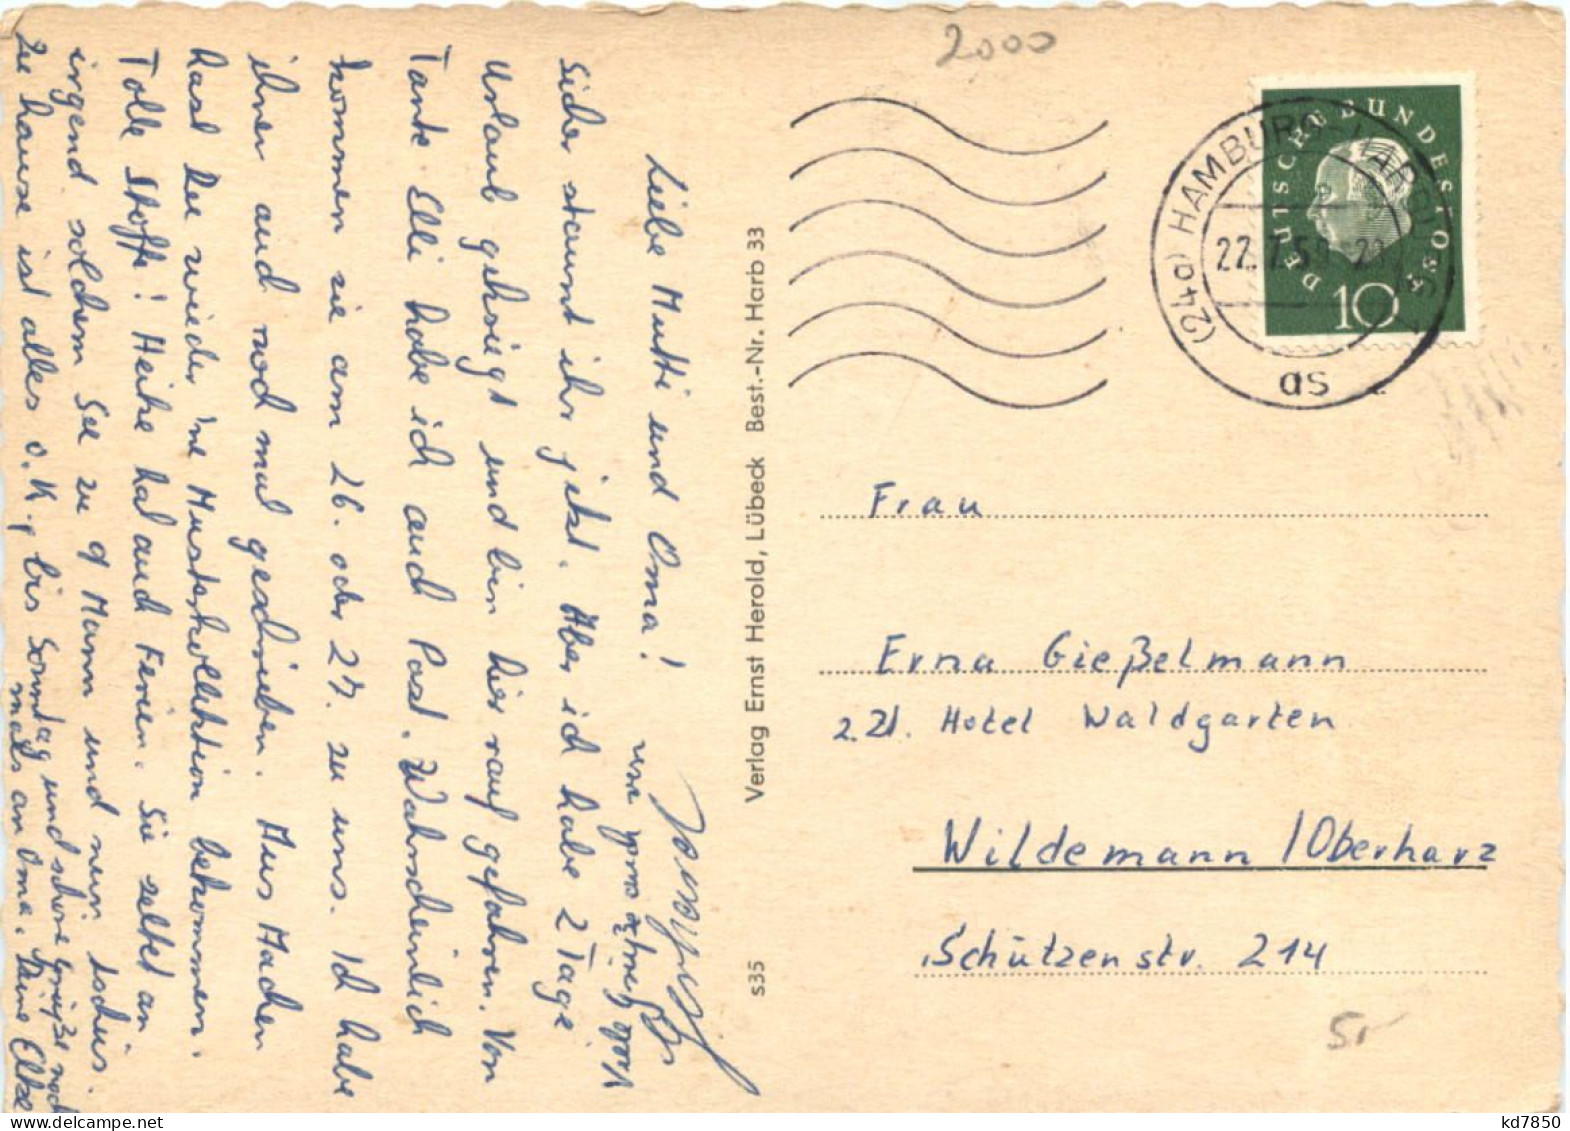 Liebe Mutti und Oma!
Sicher staunt ihr jetzt. Aber ich habe 2 Tage
Urlaub gekriegt und bin hier rauf gefahren. Von
Tante Elli habe ich auch Post. Wahrscheinlich
kommen sie am 26. oder 27. zu uns. Ich habe
ihnen auch noch mal geschrieben. Aus Aachen
hast Du wieder 'ne Musterkollektion bekommen.
Tolle Stoffe! Heike hat auch Ferien. Sie zeltet an
irgend solchem See zu 9 Mann und nun tschüs.
Zu hause ist alles o.K., bis Sonntag und schöne Grüße noch
mals an Oma. Deine Elke
2000
DEUTSCHE BUNDESPOST
10
(24a) HAMBURG-HARBURG
22.7.59
as
Verlag Ernst Herold, Lübeck Best.-Nr. Harb 33
s35
Frau
Erna Gießelmann
z.Zt. Hotel Waldgarten
Wildemann /Oberharz
Schützenstr. 214
5,-
kd7850